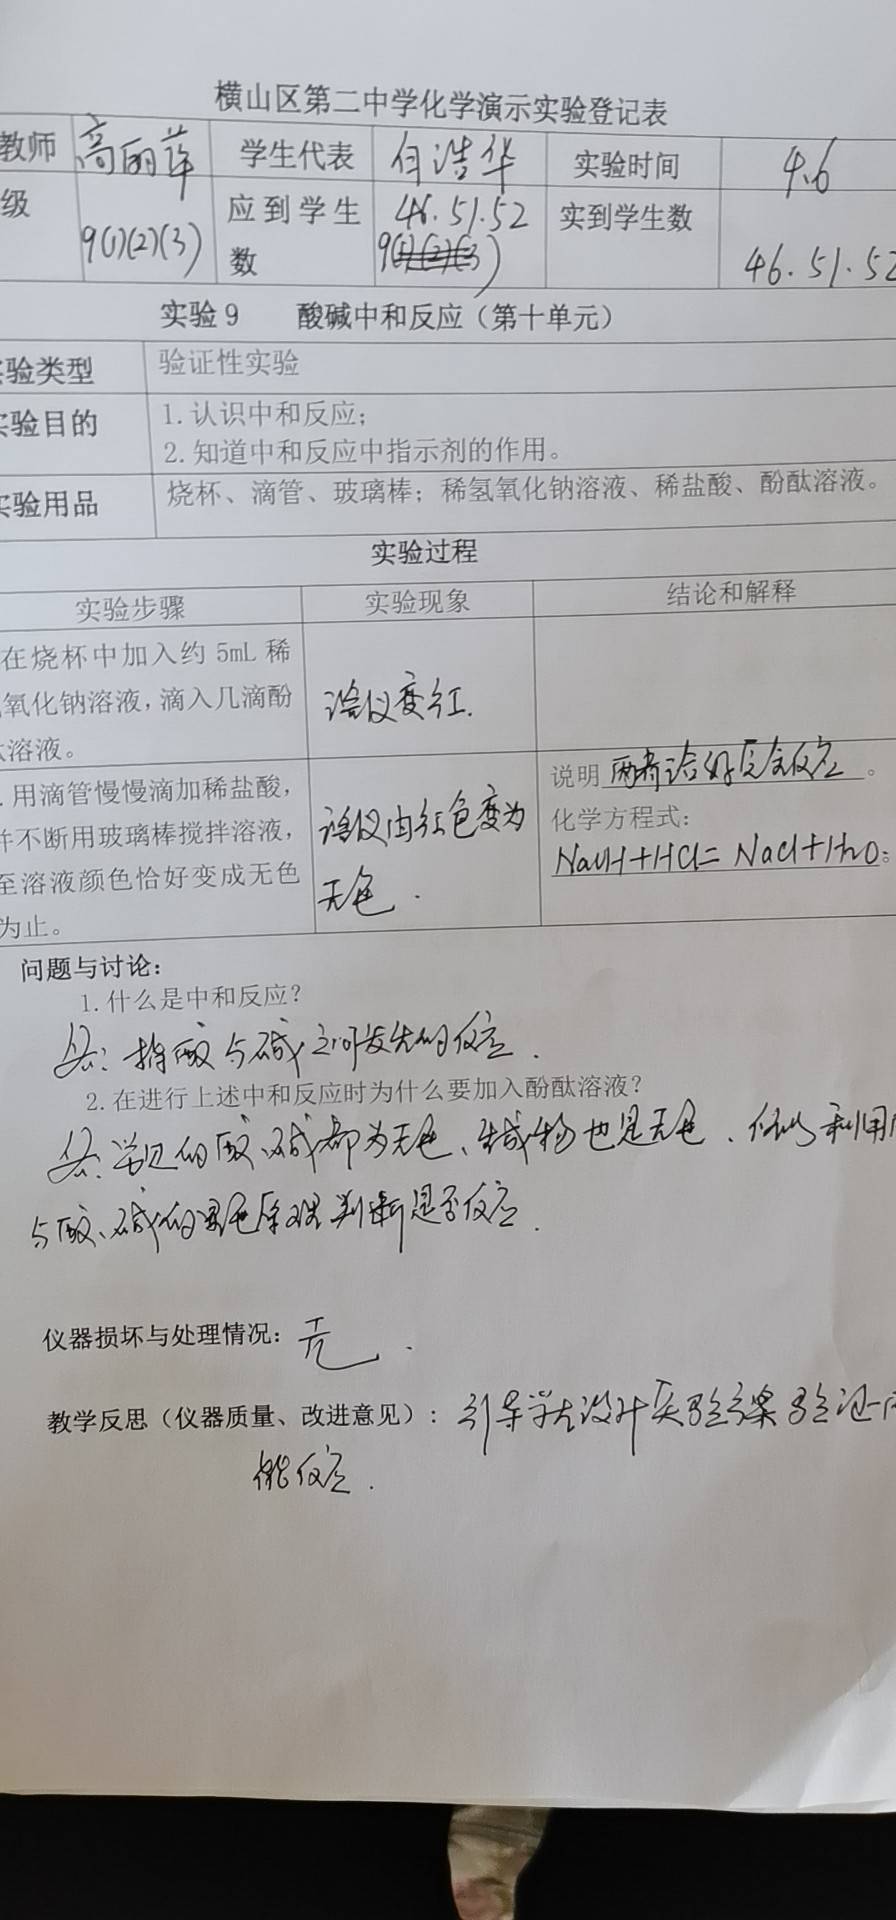 横山区第二中学化学演示实验登记表
教师 高丽萍 学生代表 白浩华 实验时间 4.6
级 9(1)(2)(3) 应到学生数 46.51.52 实到学生数 46.51.52
实验9 酸碱中和反应（第十单元）
验类型 验证性实验
实验目的 1.认识中和反应；
2.知道中和反应中指示剂的作用。
实验用品 烧杯、滴管、玻璃棒；稀氢氧化钠溶液、稀盐酸、酚酞溶液。
实验过程
实验步骤 实验现象 结论和解释
在烧杯中加入约 5mL 稀
氧化钠溶液，滴入几滴酚
溶液。
溶液变红.
.用滴管慢慢滴加稀盐酸，
并不断用玻璃棒搅拌溶液，
至溶液颜色恰好变成无色
为止。
溶液由红色变为
无色.
说明 两者恰好完全反应 。
化学方程式：
NaOH+HCl=NaCl+H2O。
问题与讨论：
1.什么是中和反应？
答：指酸与碱之间发生的反应.
2.在进行上述中和反应时为什么要加入酚酞溶液？
答：常见的酸、碱都为无色、生成物也是无色、所以利用
与酸、碱的显色原理判断是否反应.
仪器损坏与处理情况：无.
教学反思（仪器质量、改进意见）：引导学生设计实验方案验证
能反应.